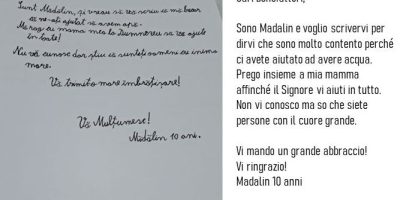 Sunt Madalin, și vreau să vă scriu că mă bucur
că ne-ați ajutat să avem apă.
Mă rog cu mama mea la Dumnezeu să vă ajute
în toate!
Nu vă cunosc dar știu că sunteți oameni cu inima
mare.
Vă trimit o mare îmbrățișare!
Vă Mulțumesc!
Mădălin 10 ani.
Sono Madalin e voglio scrivervi per
dirvi che sono molto contento perché
ci avete aiutato ad avere acqua.
Prego insieme a mia mamma
affinché il Signore vi aiuti in tutto.
Non vi conosco ma so che siete
persone con il cuore grande.
Vi mando un grande abbraccio!
Vi ringrazio!
Madalin 10 anni